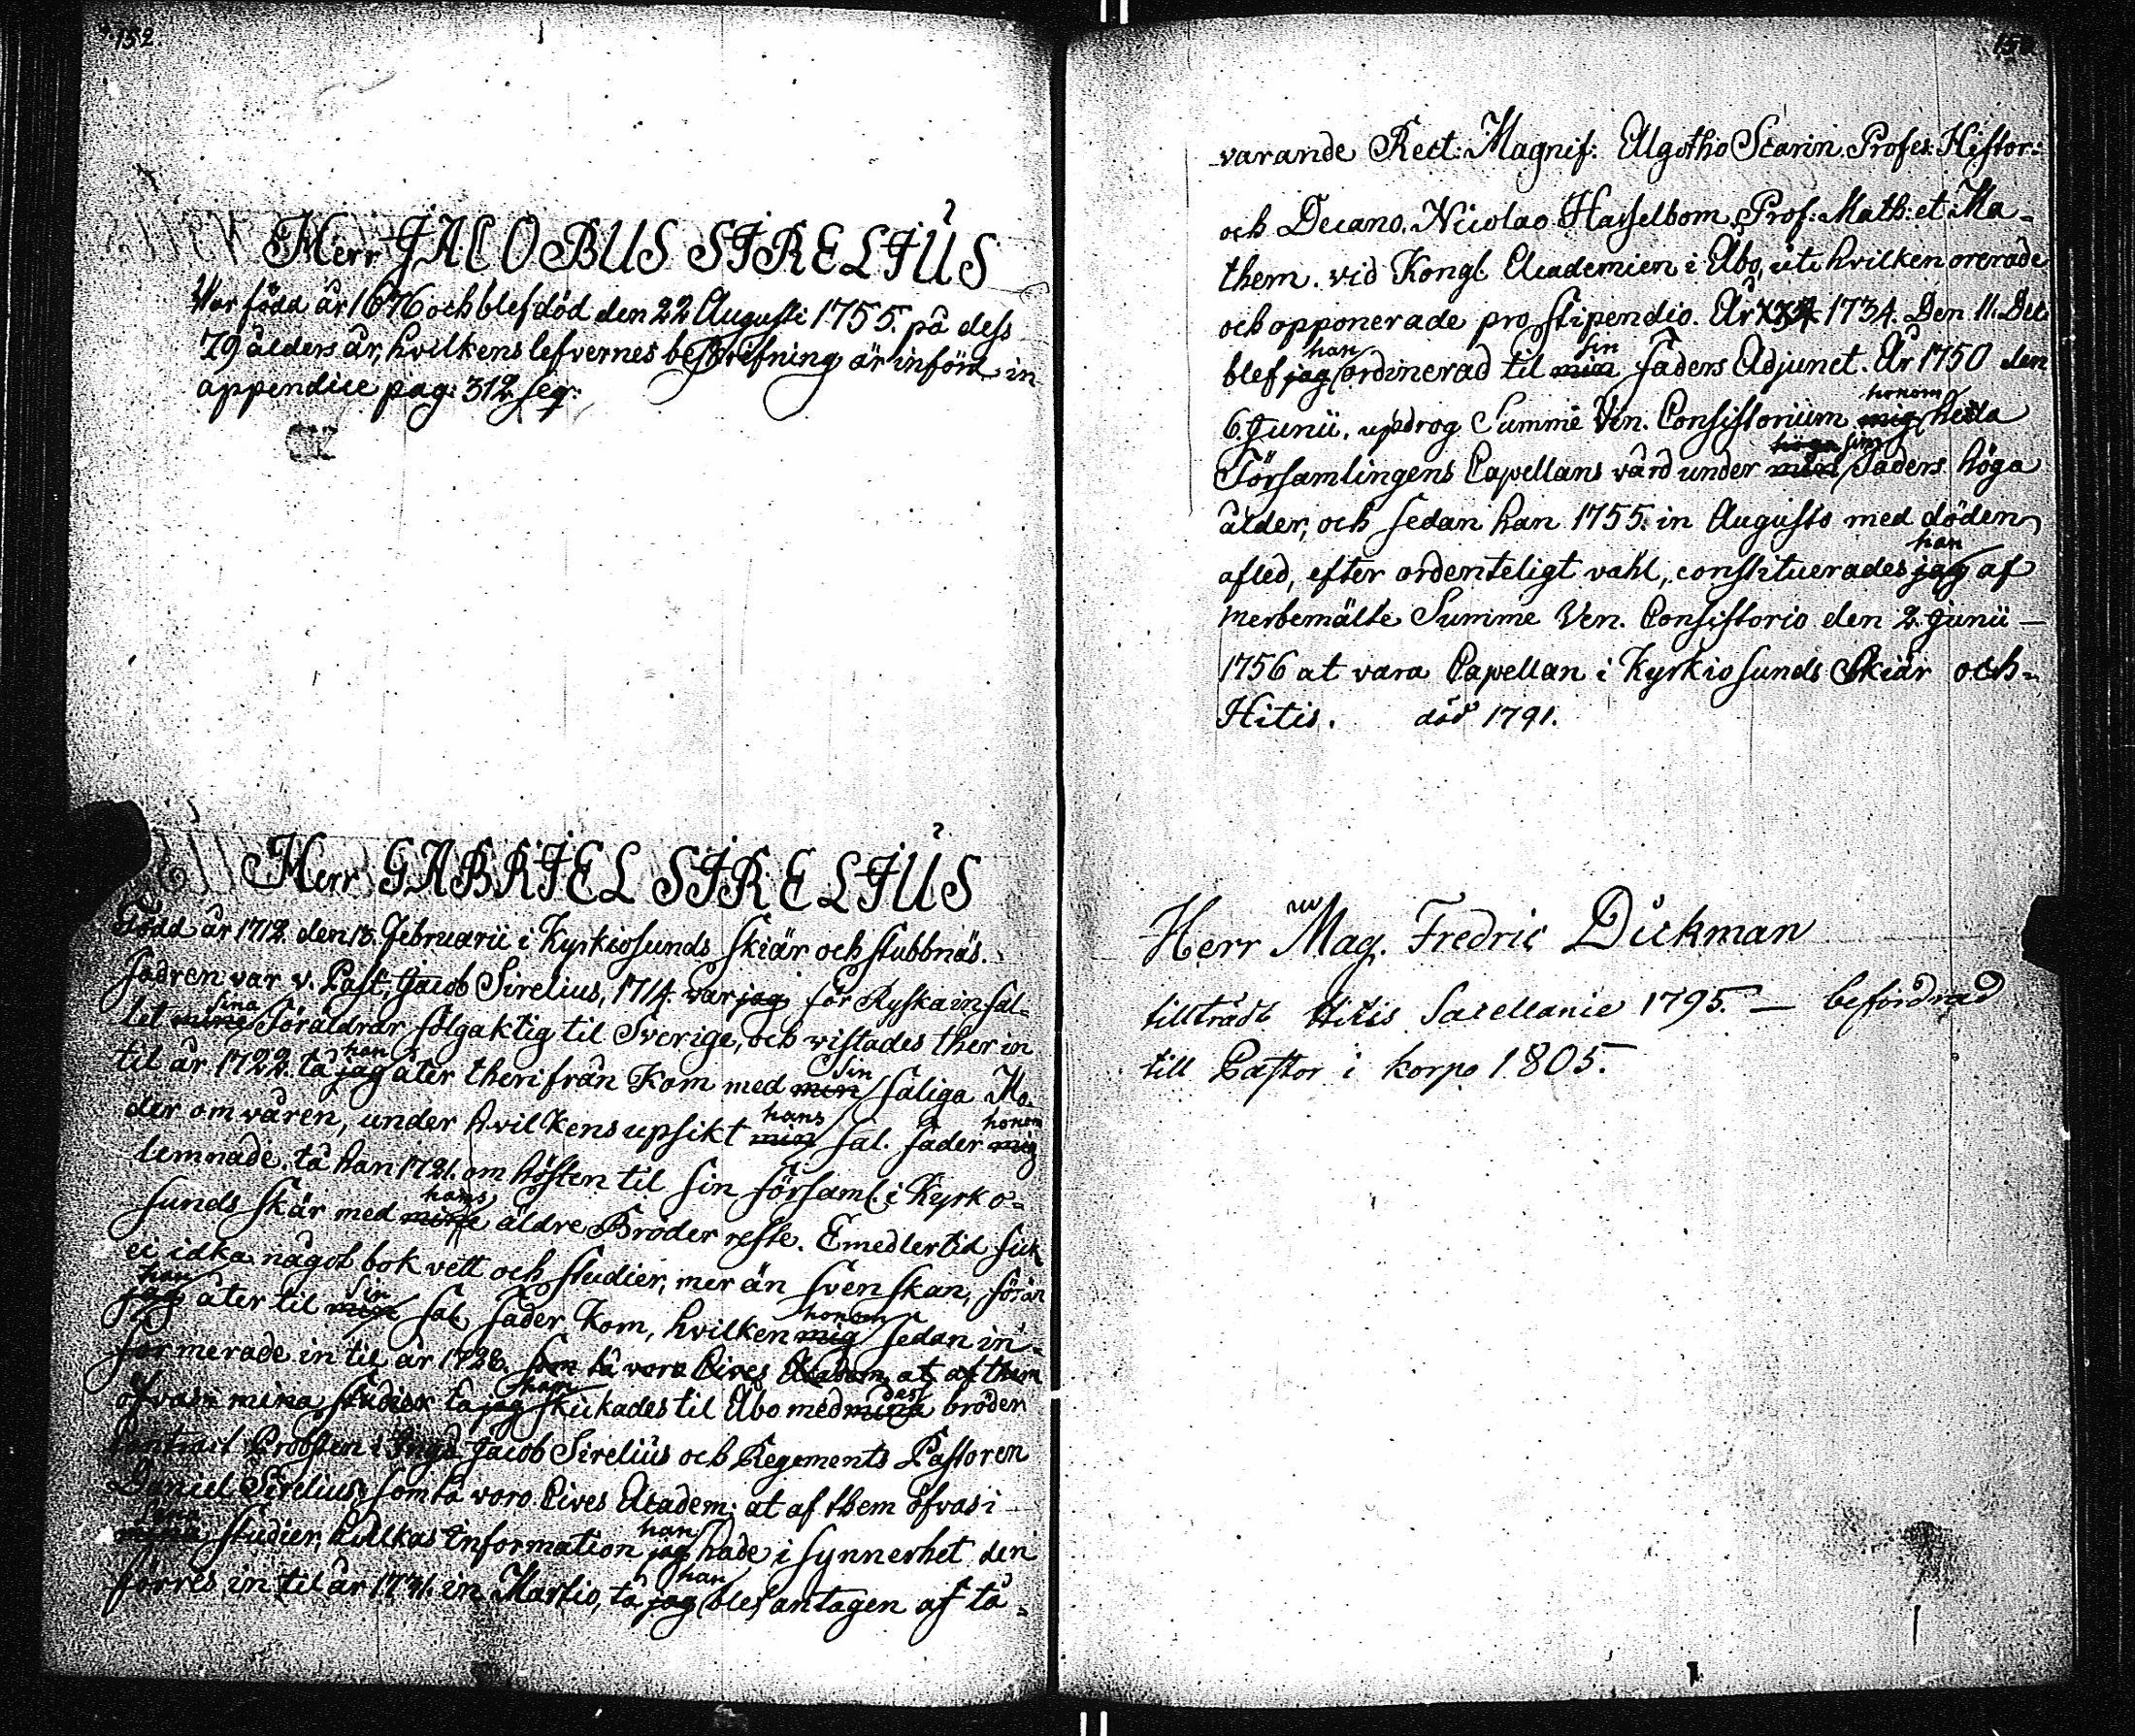 152.
Herr JACOBUS SIRELIUS
Var född år 1676 och blef död den 22 Augusti 1755. på dess
79 ålders år, hvilkens lefvernes beskrifning är införd in
appendice pag: 312 seq:
Herr GABRIEL SIRELIUS
Född år 1712. den 15. Februarii i Kyrkiosunds skiär och stubbnäs.
fadren var v. Past. Jacob Sirelius, 1714. war jag för Ryska infal-
let mine sina Föräldrar fölgaktig til Sverige, och vistades ther in
til år 1722. tå jag han åter therifrån kom med min sin saliga Mo-
der om våren, under hvilkens upsikt min hans sal. fader mig honom
lemnade, tå han 1721. om hösten til sin församl. i Kyrko-
sunds skär med mine hans äldre Bröder reste. Emedlertid fick
ei idka något bok vett och studier, mer än svenskan, förän
jag han åter til min sin sal. fader kom, hvilken mig honom sedan in-
formerade in til år 1728. som tå voro Cives Academ. at af them
öfvas i mina studier tå jag han skickades til Åbo med mina des bröder
Contract Probsten i Jacob Sirelius och Regements Pastoren
Daniel Sirelius, som tå voro Cives Academ: at af them öfvas i
mina sina studier, hvilkas information jag han hade i synnerhet den
förres in til år 1731. in Martio, tå jag han blef antagen af tå-
varande Rect: Magnif: Algotho Scarin Profes: Histor:
och Decano. Nicolao Hasselbom Prof: Math: et Ma-
them. vid Kongl. Academien i Åbo, uti hvilken orerade
och opponerade pro stipendio. År 1734. Den 11. Dec.
blef jag han ordinerad til min sin faders Adjunct. År 1750 den
6. Junii, updrog Summe Ven. Consistorium mig honom hela
Församlingens Capellans vård under min höga sin faders höga
ålder, och sedan han 1755. in Augusto med döden
afled, efter ordenteligt vahl, constituerades jag han af
merbemälte Summe Ven. Consistorio den 2. Junii —
1756 at vara Capellan i Kyrkiosunds Skiär och-
Hitis. död 1791.
Herr Mag. Fredric Dickman
tillträdt Hitis Sacellanie 1795. — befordrad
till Pastor i Korpo 1805.